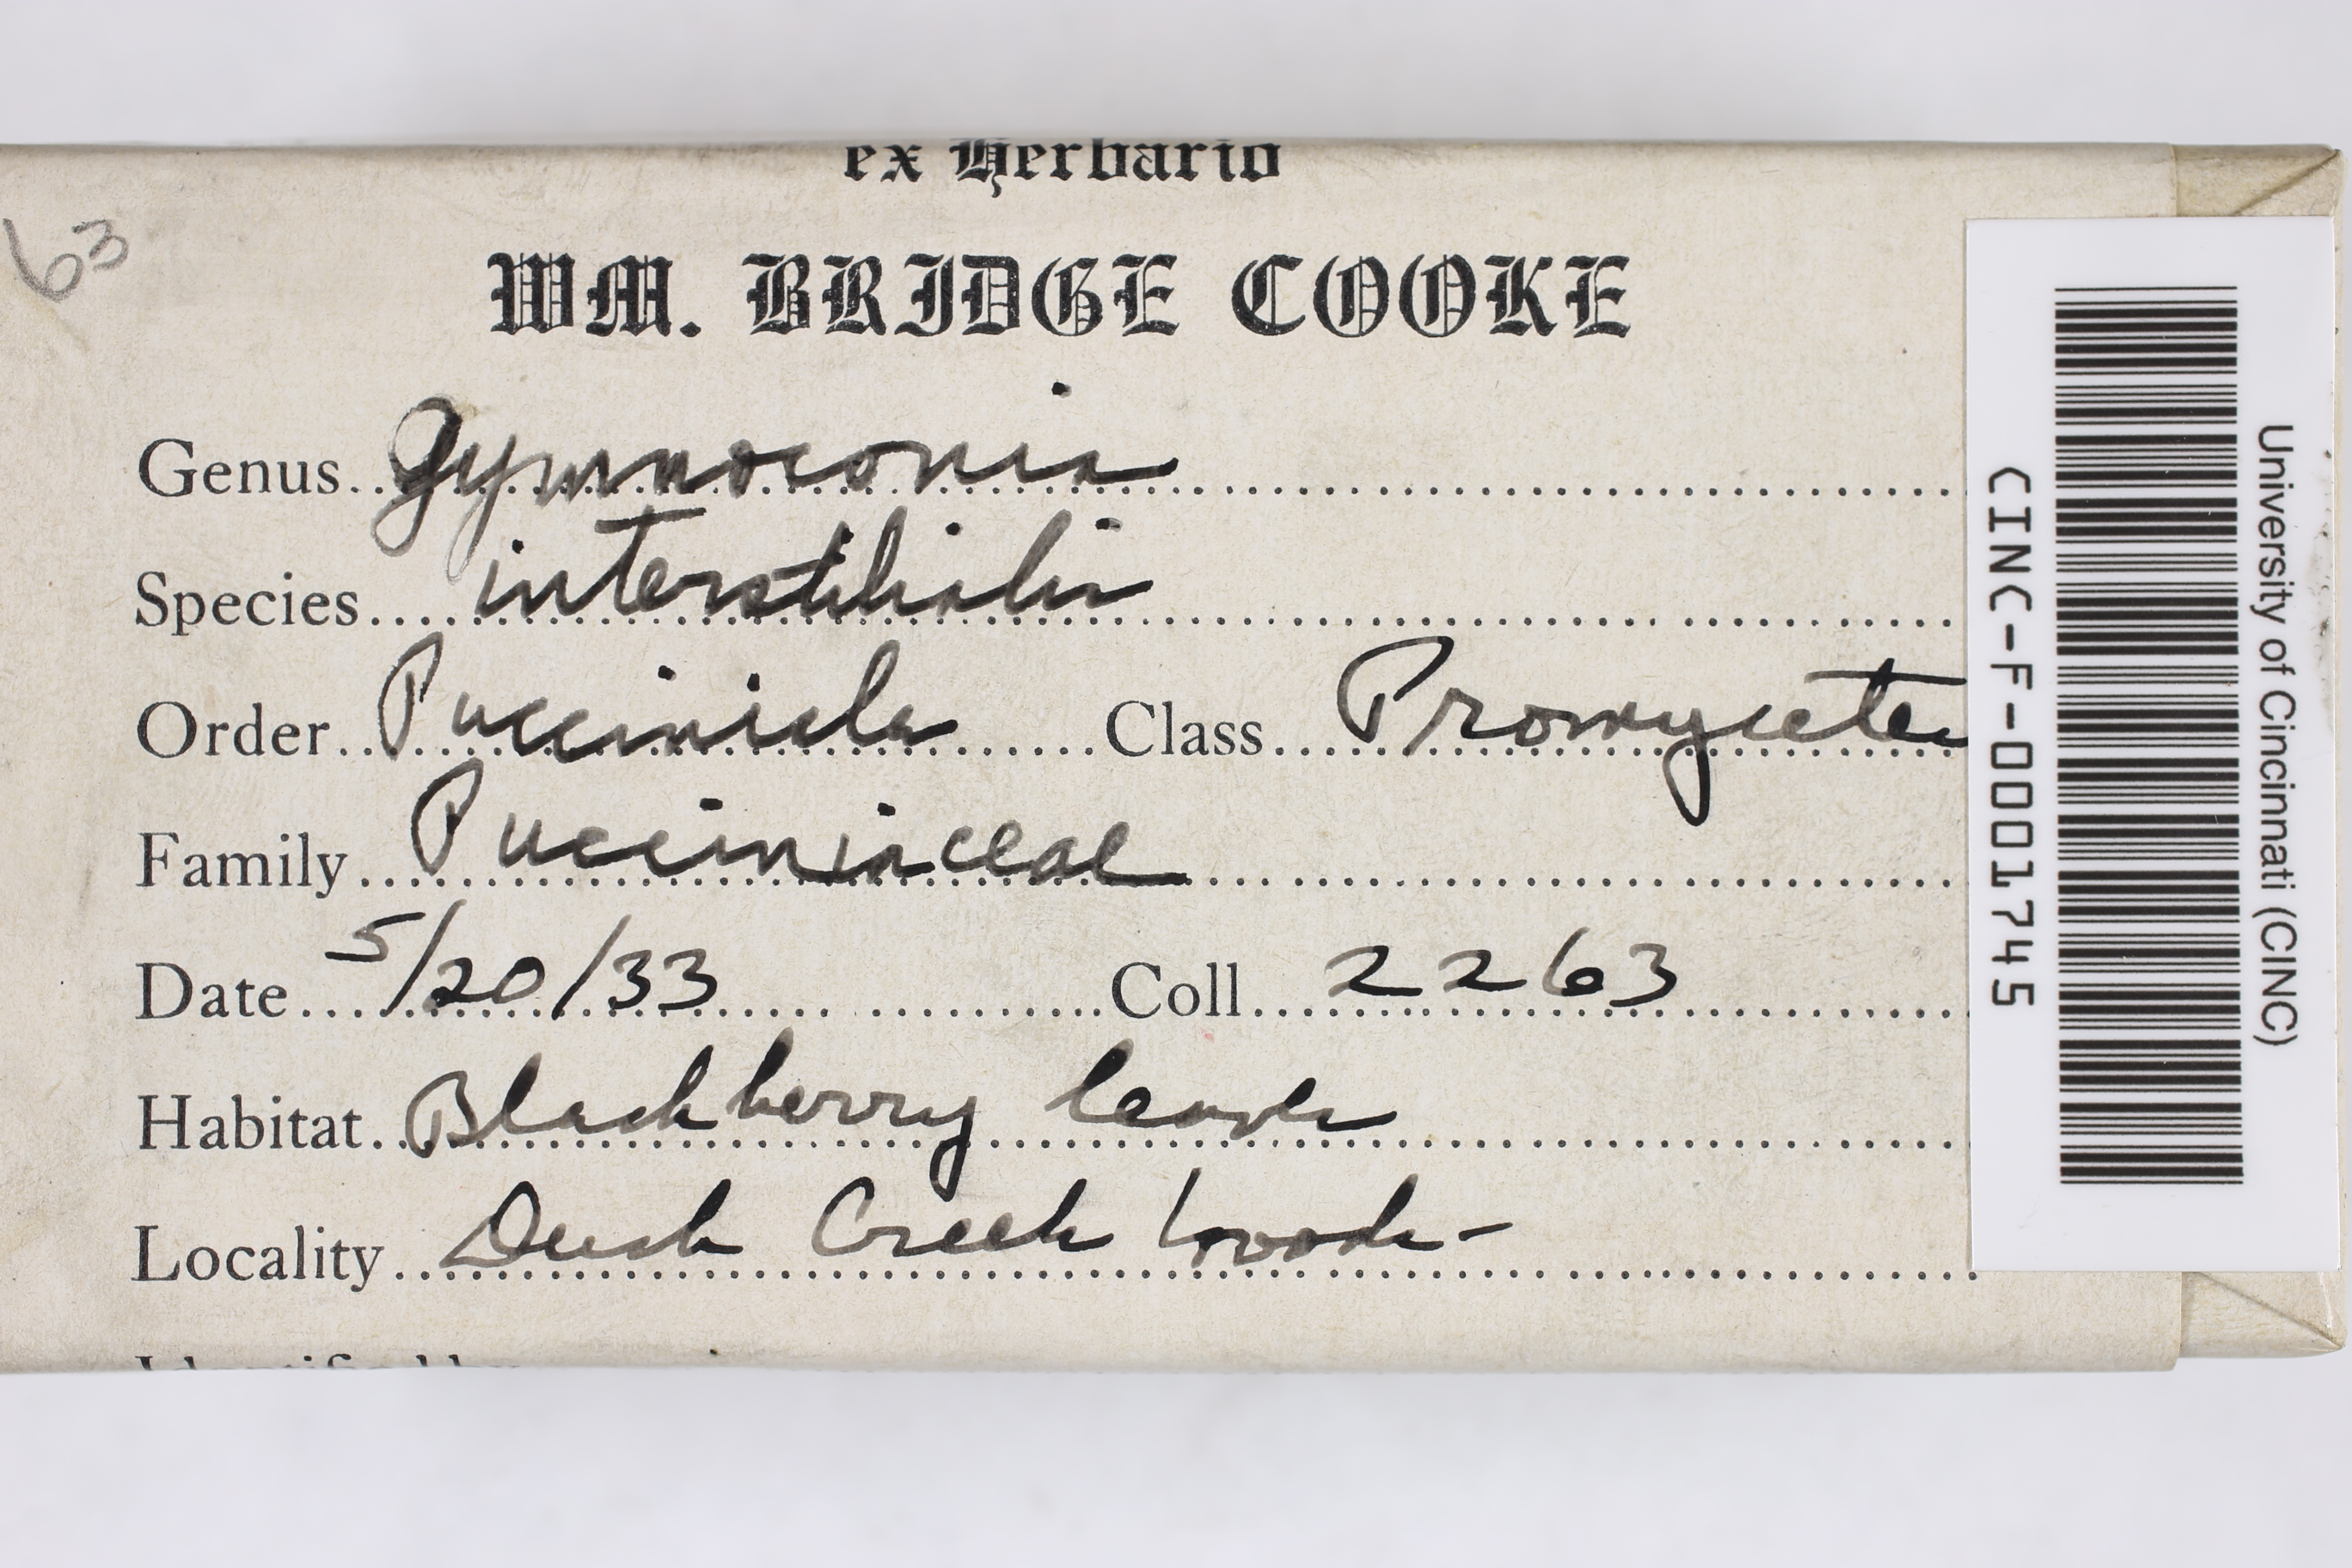 ex Herbario
63
WM. BRIDGE COOKE
Genus Gymnoconia
Species interstitialis
Order Pucciniales Class Promycetes
Family Pucciniaceae
Date 5/20/33 Coll 2263
Habitat Blackberry leaves
Locality Duck Creek Woods-
University of Cincinnati (CINC)
CINC-F-0001745